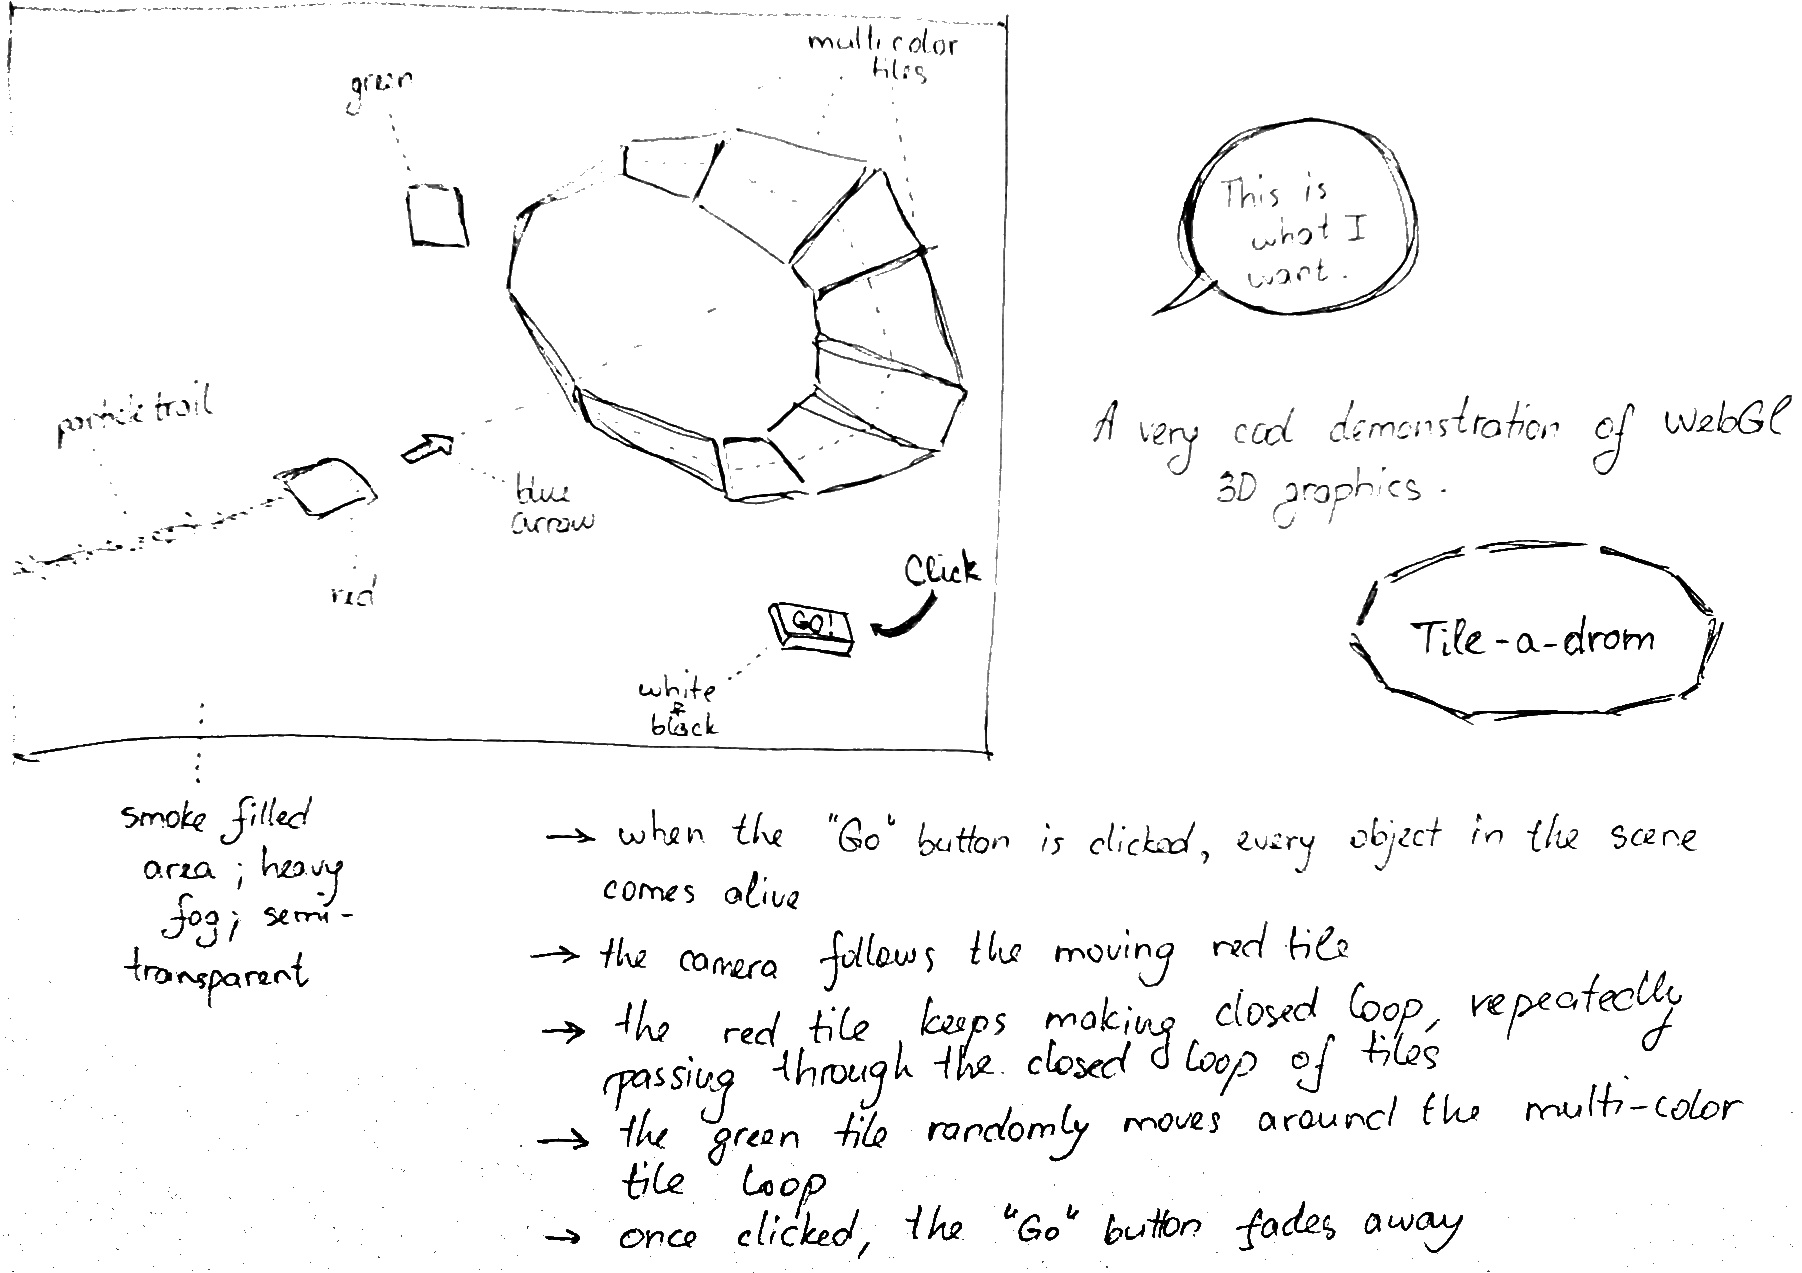 multicolor
tiles
green
This is
what I
want.
particle trail
blue
arrow
red
A very cool demonstration of WebGl
3D graphics.
Click
GO!
Tile-a-drom
white
&
black
smoke filled
area ; heavy
fog ; semi-
transparent
→ when the "Go" button is clicked, every object in the scene
comes alive
→ the camera follows the moving red tile
→ the red tile keeps making closed loop, repeatedly
passing through the closed loop of tiles
→ the green tile randomly moves around the multi-color
tile loop
→ once clicked, the "Go" button fades away